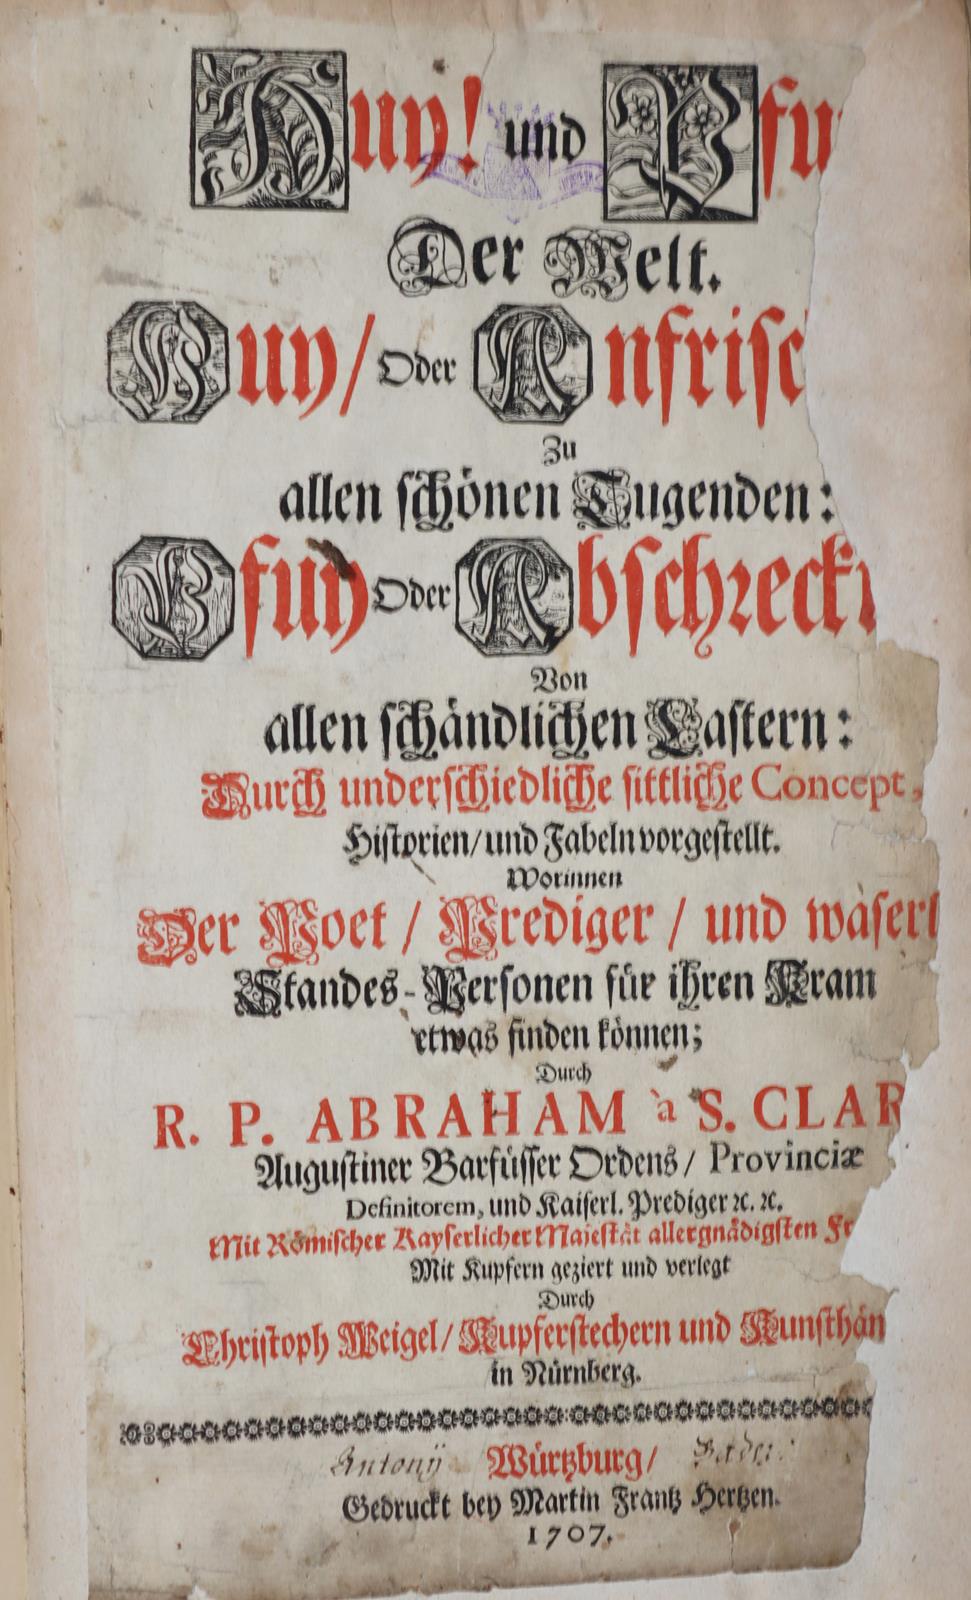 Huy! und Pfu
Der Welt.
Huy / Oder Anfrisc
Zu
allen schönen Tugenden:
Pfuy Oder Abschreck
Von
allen schändlichen Lastern:
Durch underschiedliche sittliche Concept,
Historien / und Fabeln vorgestellt.
Worinnen
Der Poet / Prediger / und waserl
Standes-Personen für ihren Kram
etwas finden können;
Durch
R. P. ABRAHAM à S. CLAR
Augustiner Barfüsser Ordens / Provinciæ
Definitorem, und Kaiserl. Prediger ꝛc. ꝛc.
Mit Römischer Kayserlicher Majestät allergnädigsten Fr
Mit Kupfern geziert und verlegt
Durch
Christoph Weigel / Kupferstechern und Kunsthän
in Nürnberg.
Antonij Würtzburg /
Gedruckt bey Martin Frantz Hertzen.
1707.